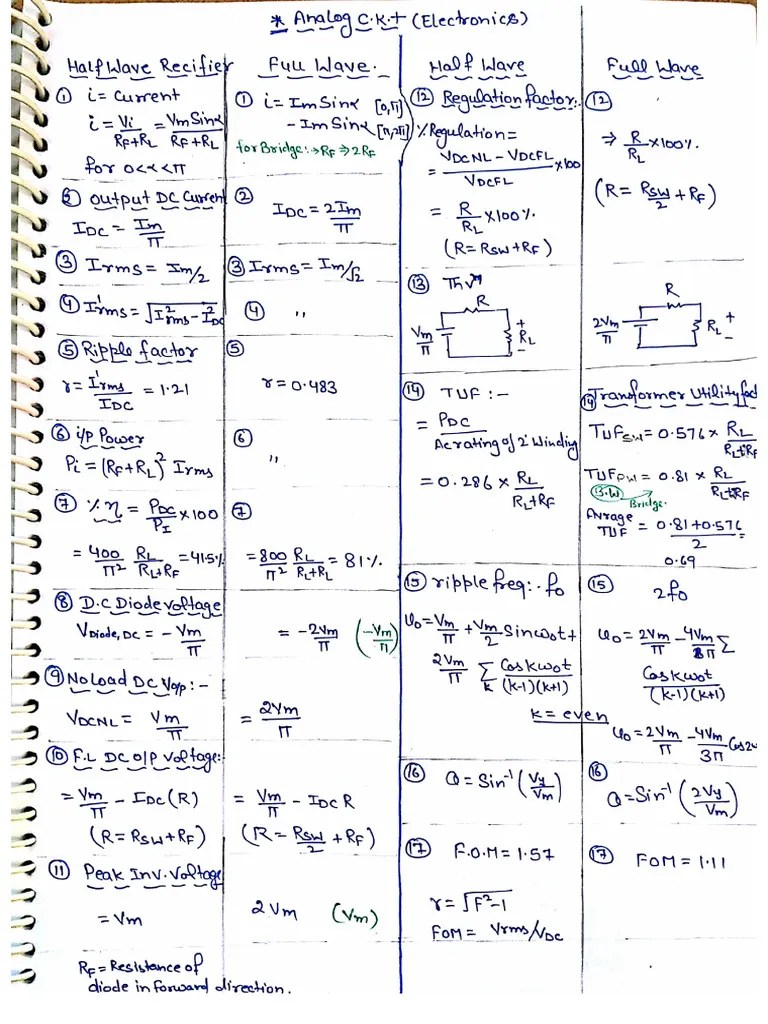 * Analog C.K.t (Electronics)
Half Wave Recifier
① i = Current
i = Vi/(RF+RL) = Vm Sinα/(RF+RL)
for 0<α<π
② output DC Current
IDC = Im/π
③ Irms = Im/2
④ I'rms = √(I²rms - I²DC)
⑤ Ripple factor
r = I'rms/IDC = 1.21
⑥ i/p Power
Pi = (RF+RL)² Irms
⑦ % η = PDC/PI × 100
= 400/π² RL/(RL+RF) = 41.5%
⑧ D.C Diode Voltage
VDiode, DC = - Vm/π
⑨ No Load DC Vo/p :-
VDCNL = Vm/π
⑩ F.L DC O/P Voltage:-
= Vm/π - IDC (R)
(R = RSW + RF)
⑪ Peak Inv. Voltage
= Vm
RF = Resistance of
diode in forward direction.
Full Wave.
① i = Im Sinα [0,π]
- Im Sinα [π,2π]
for Bridge :→ RF ⇒ 2RF
② IDC = 2Im/π
③ Irms = Im/√2
④ "
⑤
r = 0.483
⑥
"
⑦
= 800/π² RL/(RL+RL) = 81%
= -2Vm/π (-Vm/π)
= 2Vm/π
= Vm/π - IDC R
(R = RSW/2 + RF)
2Vm (Vm)
Half Wave
⑫ Regulation factor:-
% Regulation =
= (VDCNL - VDCFL)/VDCFL × 100
= R/RL × 100%
(R = RSW + RF)
⑬ Thvⁿ
R
Vm/π
+
RL
-
⑭ TUF :-
= PDC/Ac rating of 2° Winding
= 0.286 × RL/(RL+RF)
⑮ ripple freq:- fo
υo = Vm/π + Vm/2 Sinωot +
2Vm/π Σk Coskωot/((k-1)(k+1))
k = even
⑯ θ = Sin⁻¹ (Vy/Vm)
⑰ F.O.M = 1.57
r = √(F²-1)
FOM = Vrms/VDC
Full Wave
⑫
⇒ R/RL × 100%
(R = RSW/2 + RF)
R
2Vm/π
RL +
-
⑭ Transformer Utility fact
TUFSW = 0.576 × RL/(RL+RF)
TUFPW = 0.81 × RL/(RL+RF)
B.W Bridge.
Avrage
TUF = (0.81+0.576)/2 =
0.69
⑮ 2fo
υo = 2Vm/π - 4Vm/π Σ
Coskωot/((k-1)(k+1))
υo = 2Vm/π - 4Vm/3π Cos2ω
⑯
θ = Sin⁻¹ (2Vy/Vm)
⑰ FOM = 1.11